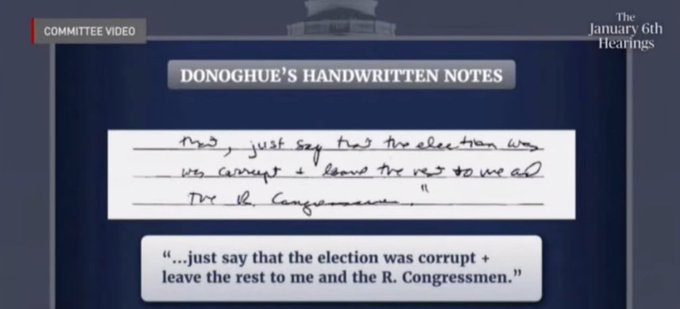 COMMITTEE VIDEO
The
January 6th
Hearings
DONOGHUE'S HANDWRITTEN NOTES
that, just say that the election was
was corrupt + leave the rest to me and
the R. Congressmen."
"...just say that the election was corrupt +
leave the rest to me and the R. Congressmen."